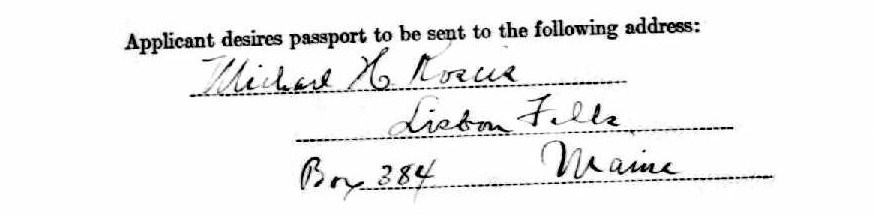 Applicant desires passport to be sent to the following address:
Michael H. Roscis
Lisbon Falls
Box 384 Maine